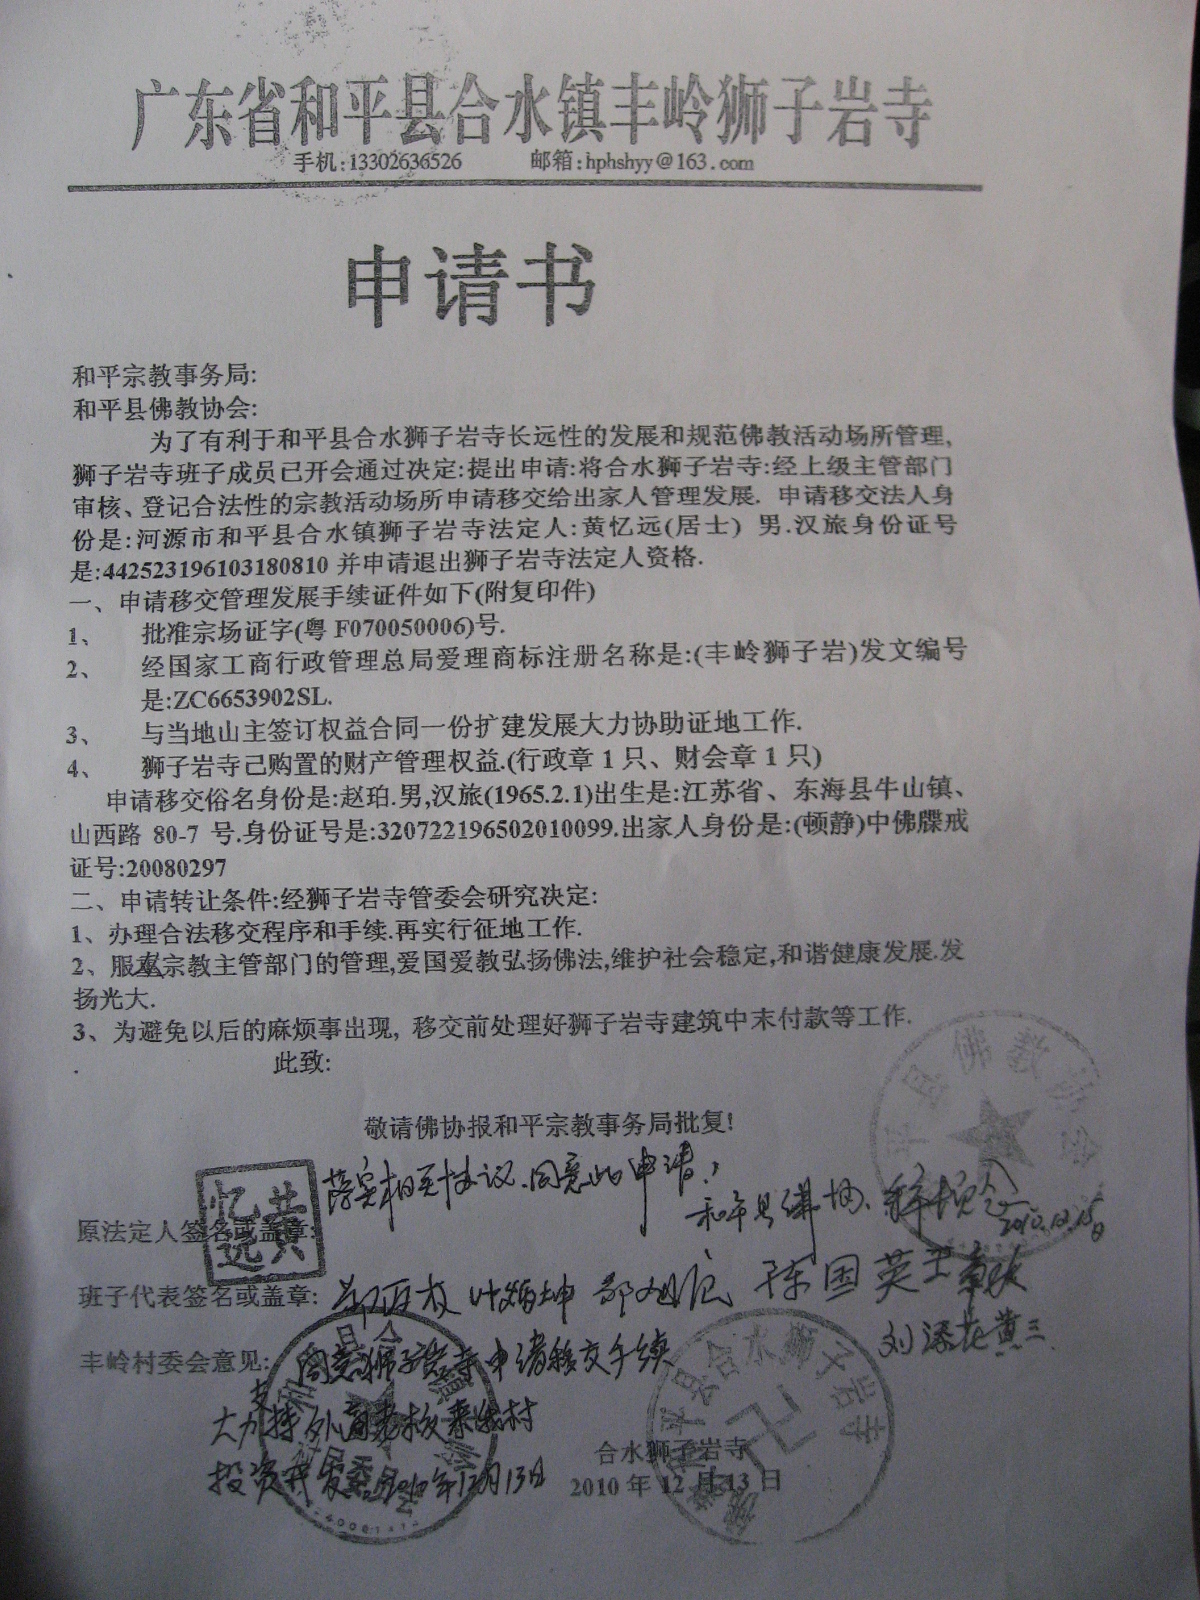 广东省和平县合水镇丰岭狮子岩寺
手机:13302636526 邮箱:hphshyy@163.com
申请书
和平宗教事务局:
和平县佛教协会:
为了有利于和平县合水狮子岩寺长远性的发展和规范佛教活动场所管理,
狮子岩寺班子成员已开会通过决定:提出申请:将合水狮子岩寺:经上级主管部门
审核、登记合法性的宗教活动场所申请移交给出家人管理发展. 申请移交法人身
份是:河源市和平县合水镇狮子岩寺法定人:黄忆远(居士) 男.汉旅身份证号
是:442523196103180810 并申请退出狮子岩寺法定人资格.
一、申请移交管理发展手续证件如下(附复印件)
1、 批准宗场证字(粤 F070050006)号.
2、 经国家工商行政管理总局爱理商标注册名称是:(丰岭狮子岩)发文编号
是:ZC6653902SL.
3、 与当地山主签订权益合同一份扩建发展大力协助证地工作.
4、 狮子岩寺己购置的财产管理权益.(行政章 1 只、财会章 1 只)
申请移交俗名身份是:赵珀.男,汉旅(1965.2.1)出生是:江苏省、东海县牛山镇、
山西路 80-7 号.身份证号是:320722196502010099.出家人身份是:(顿静)中佛牒戒
证号:20080297
二、申请转让条件:经狮子岩寺管委会研究决定:
1、办理合法移交程序和手续.再实行征地工作.
2、服从宗教主管部门的管理,爱国爱教弘扬佛法,维护社会稳定,和谐健康发展.发
扬光大.
3、为避免以后的麻烦事出现, 移交前处理好狮子岩寺建筑中末付款等工作.
此致:
敬请佛协报和平宗教事务局批复!
落实相关协议.同意此申请,
和平县佛协. 2010.12.15日
原法定人签名或盖章: 黄忆远
班子代表签名或盖章: 陈国英
刘添花 黄三
丰岭村委会意见: 同意狮子岩寺申请移交手续
大力支持外商老板来我村
投资开发 2010年12月13日
合水狮子岩寺
2010 年 12 月 13 日
平县佛教协会
平县合水狮子岩寺